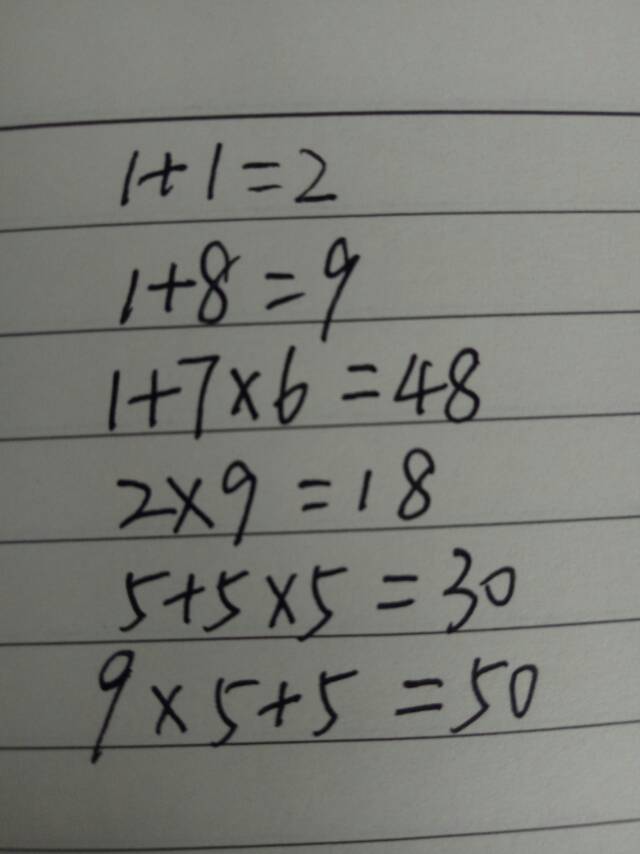 1+1=2
1+8=9
1+7×6=48
2×9=18
5+5×5=30
9×5+5=50